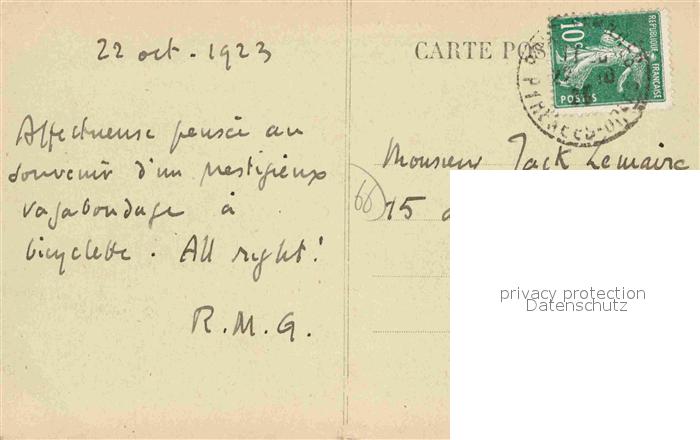 22 oct. 1923
Affectueuse pensée au
souvenir d'un prestigieux
vagabondage à
bicyclette. All right!
R. M. G.
CARTE POS
RÉPUBLIQUE FRANÇAISE
10c
POSTES
PYRÉNÉES-OR
Monsieur Jack Lemaire
66
15
privacy protection
Datenschutz